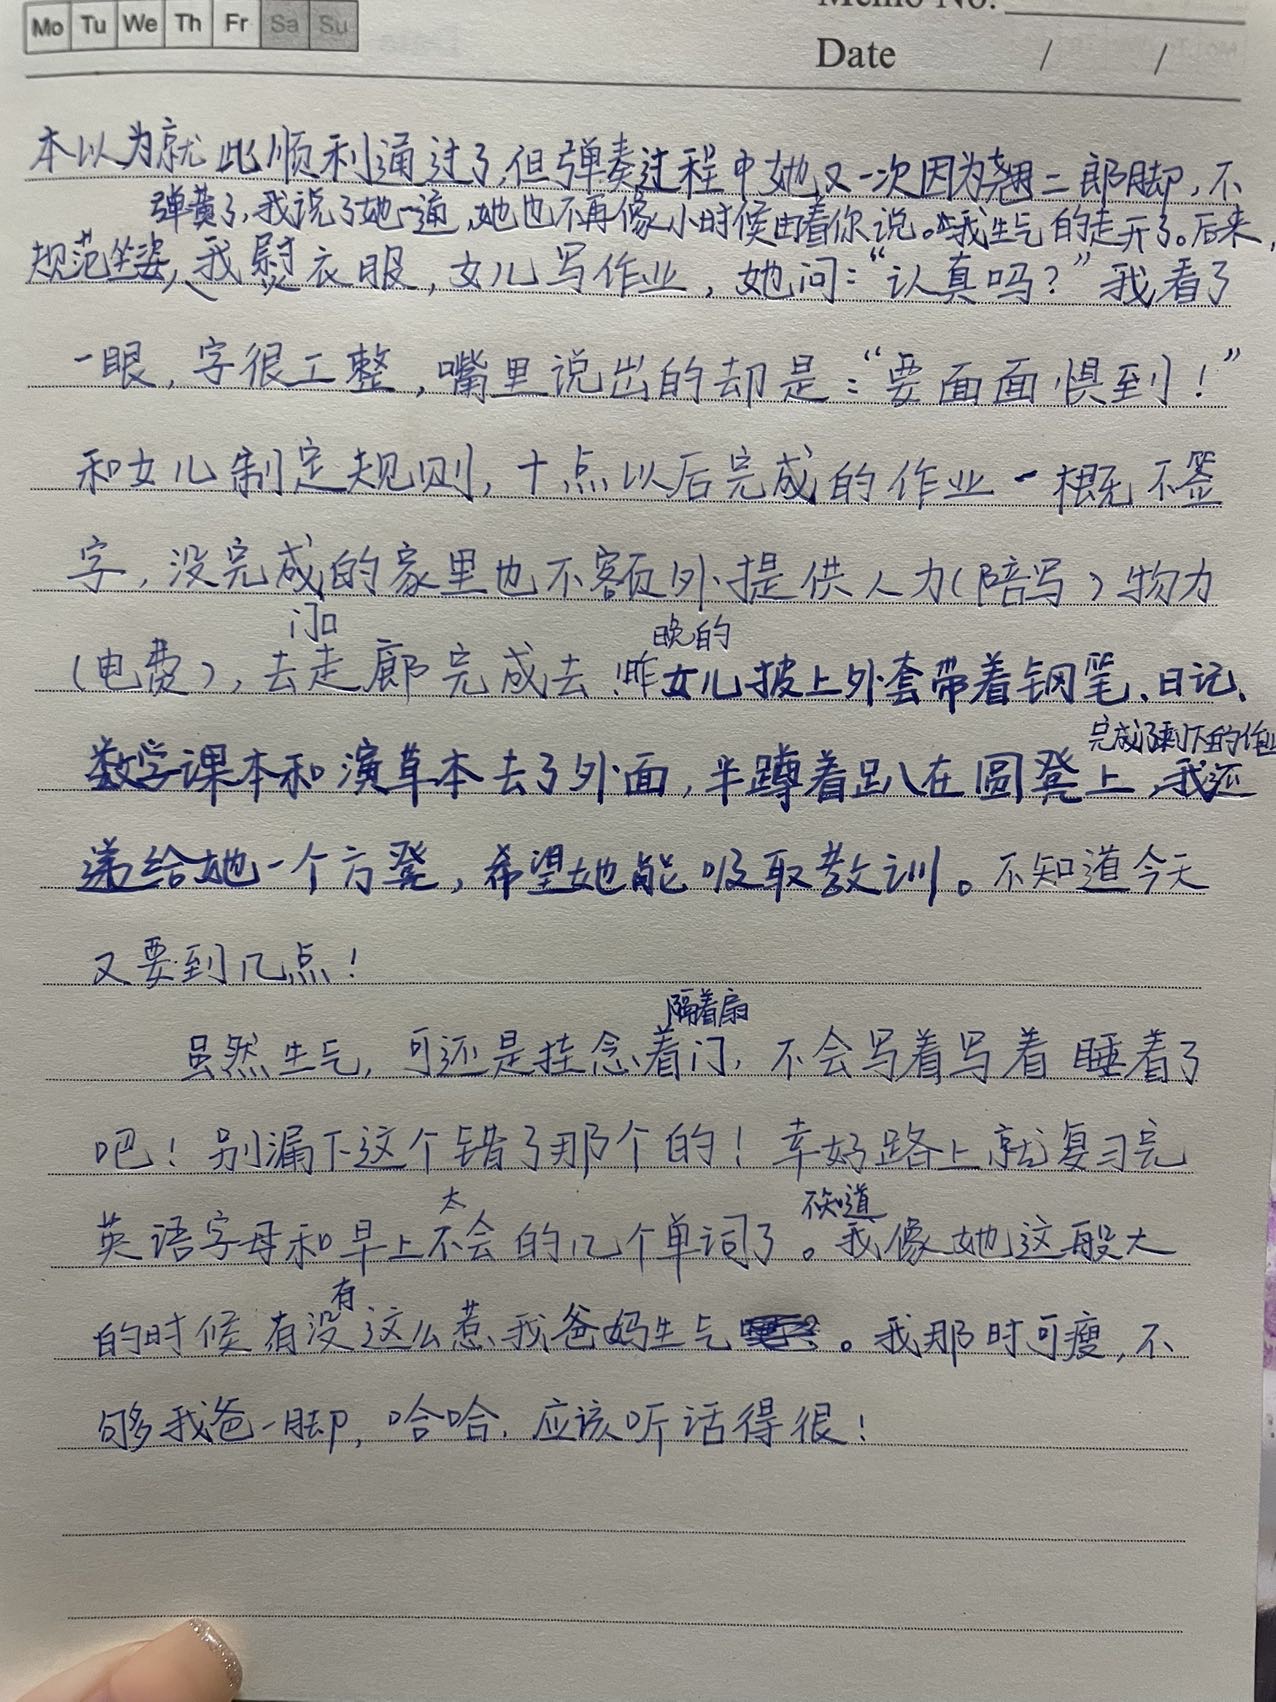 Mo Tu We Th Fr Sa Su
Memo No.
Date / /
本以为就此顺利通过了,但弹奏过程中她又一次因为翘二郎脚,不
弹费了,我说了她一通,她也不再像小时候由着你说。我生气的走开了。后来,
规范坐姿,我慰衣服,女儿写作业,她问:“认真吗?”我看了
一眼,字很工整,嘴里说出的却是:“要面面惧到!”
和女儿制定规则,十点以后完成的作业一概不签
字,没完成的家里也不额外提供人力(陪写)物力
门口
晚的
(电费),去走廊完成去!昨女儿披上外套带着钢笔、日记、
完成了剩下的作业
数学课本和演草本去了外面,半蹲着趴在圆凳上,我还
递给她一个方凳,希望她能吸取教训。不知道今天
又要到几点!
隔着扇
虽然生气,可还是挂念着门,不会写着写着睡着了
吧!别漏下这个错了那个的!幸好路上就复习完
太
不知道
英语字母和早上不会的几个单词了。我像她这般大
有
的时候有没这么惹我爸妈生气。我那时可瘦,不
够我爸一脚,哈哈,应该听话得很!